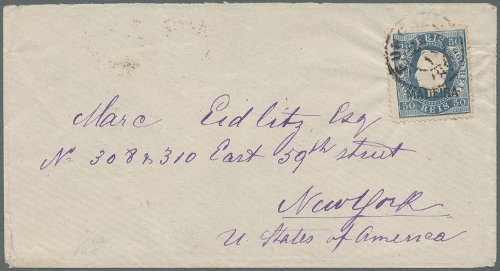 50 50
Marc Eidlitz Esq
50 REIS 50
No 308 & 310 East 59th street
New York
U States of America